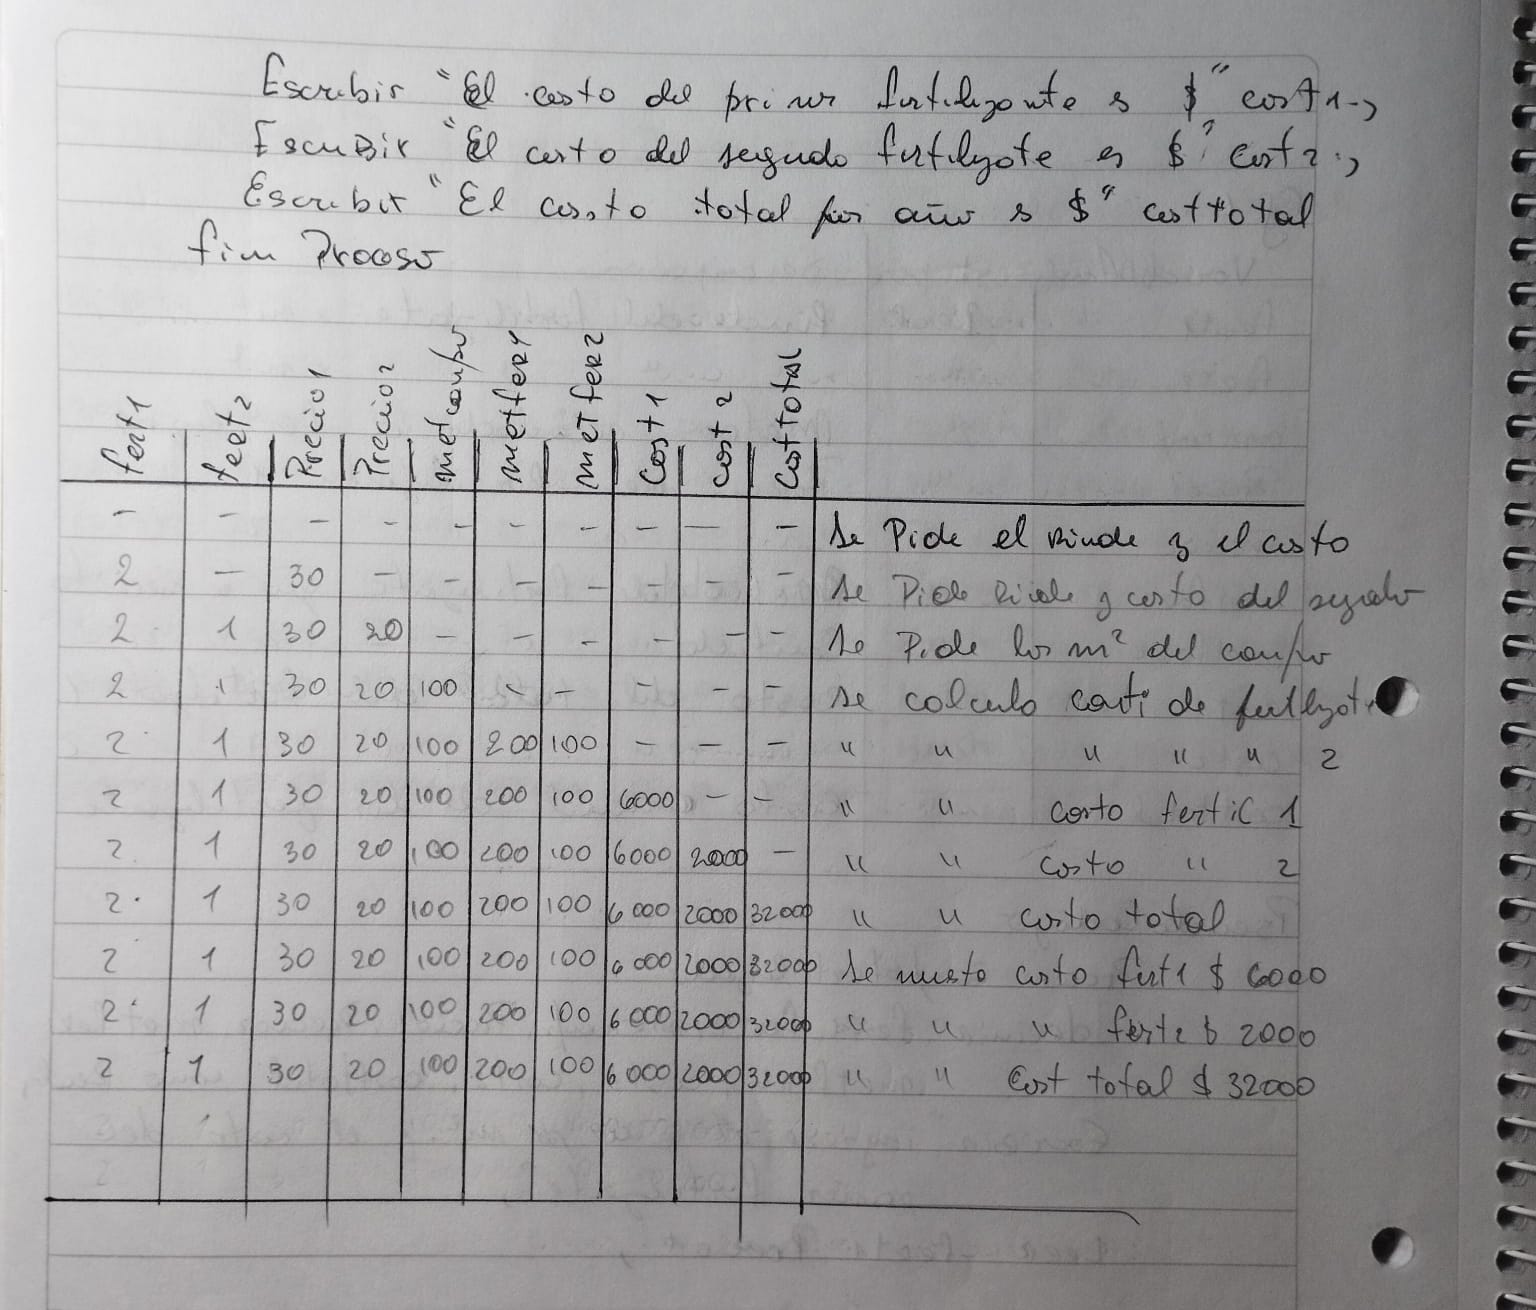 Escribir "El costo del primer fertilizante es $" cost1.,
Escribir "El costo del segundo fertilizante es $" cost2.,
Escribir "El costo total por año es $" costtotal
fin Proceso
fert1 fert2 Precio1 Precio2 metcampo metfer1 metfer2 cost1 cost2 costtotal
- - - - - - - - - - Se Pide el rinde y el costo
2 - 30 - - - - - - - Se Pide rinde y costo del segundo
2 1 30 20 - - - - - - Se Pide los m² del campo
2 1 30 20 100 - - - - - Se calcula canti de fertilizante
2 1 30 20 100 200 100 - - - " " " " " 2
2 1 30 20 100 200 100 6000 - - " " costo fertil 1
2 1 30 20 100 200 100 6000 2000 - " " costo " 2
2 1 30 20 100 200 100 6000 2000 32000 " " costo total
2 1 30 20 100 200 100 6000 2000 32000 Se muestro costo fert1 $ 6000
2 1 30 20 100 200 100 6000 2000 32000 " " " fert2 $ 2000
2 1 30 20 100 200 100 6000 2000 32000 " " Cost total $ 32000